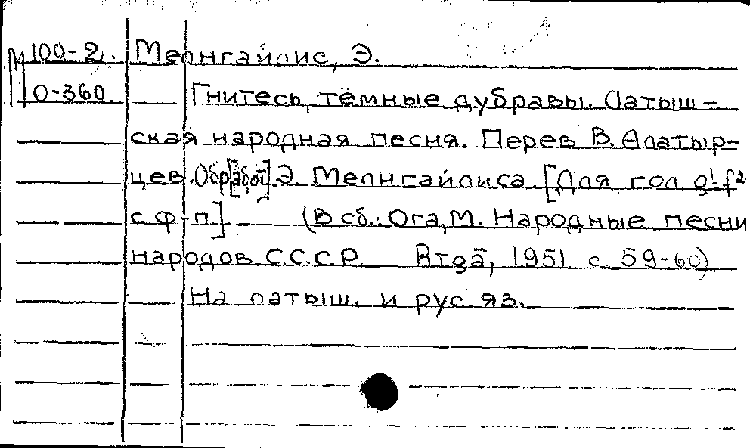 М 100-2. Мелнгайлис, Э.
0-360 Гнитесь, тёмные дубравы. Латыш-
ская народная песня. Перев. В. Алатыр-
цев. Обр[абот.] Э. Мелнгайлиса. [Для гол.
с ф-п.] (В сб.: Ога, М. Народные песни
народов С.С.С.Р. Rīgā, 1951. с. 59-60)
На латыш. и рус яз.